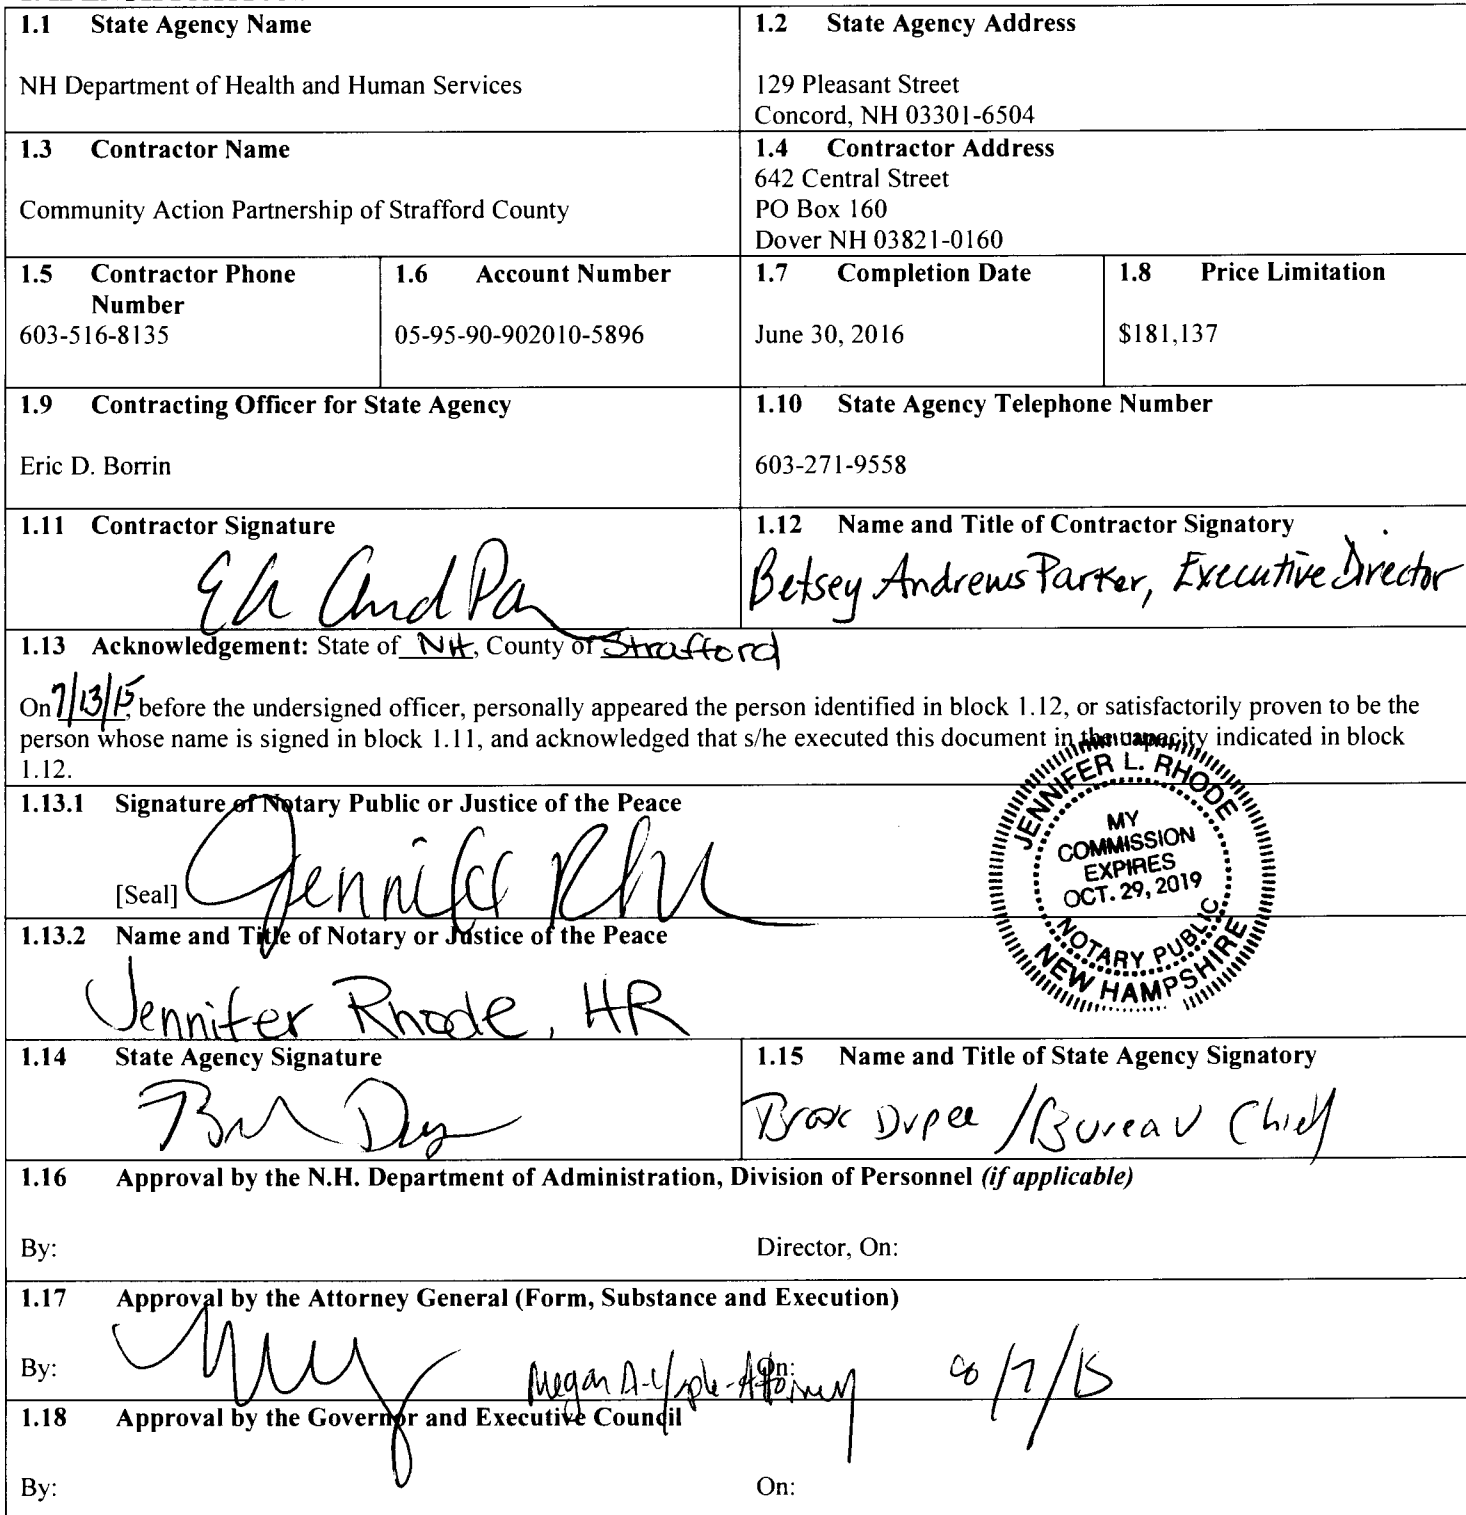 1.1 State Agency Name
NH Department of Health and Human Services
1.2 State Agency Address
129 Pleasant Street
Concord, NH 03301-6504
1.3 Contractor Name
Community Action Partnership of Strafford County
1.4 Contractor Address
642 Central Street
PO Box 160
Dover NH 03821-0160
1.5 Contractor Phone
Number
603-516-8135
1.6 Account Number
05-95-90-902010-5896
1.7 Completion Date
June 30, 2016
1.8 Price Limitation
$181,137
1.9 Contracting Officer for State Agency
Eric D. Borrin
1.10 State Agency Telephone Number
603-271-9558
1.11 Contractor Signature
1.12 Name and Title of Contractor Signatory
Betsey Andrews Parker, Executive Director
1.13 Acknowledgement: State of NH, County of Strafford
On 7/13/15, before the undersigned officer, personally appeared the person identified in block 1.12, or satisfactorily proven to be the
person whose name is signed in block 1.11, and acknowledged that s/he executed this document in the capacity indicated in block
1.12.
1.13.1 Signature of Notary Public or Justice of the Peace
[Seal] Jennifer
JENNIFER L. RHODE
MY
COMMISSION
EXPIRES
OCT. 29, 2019
NOTARY PUBLIC
NEW HAMPSHIRE
1.13.2 Name and Title of Notary or Justice of the Peace
Jennifer Rhode, HR
1.14 State Agency Signature
1.15 Name and Title of State Agency Signatory
Brook Dupee / Bureau Chief
1.16 Approval by the N.H. Department of Administration, Division of Personnel (if applicable)
By: Director, On:
1.17 Approval by the Attorney General (Form, Substance and Execution)
By: Megan A. - Attorney On: 8/7/15
1.18 Approval by the Governor and Executive Council
By: On: